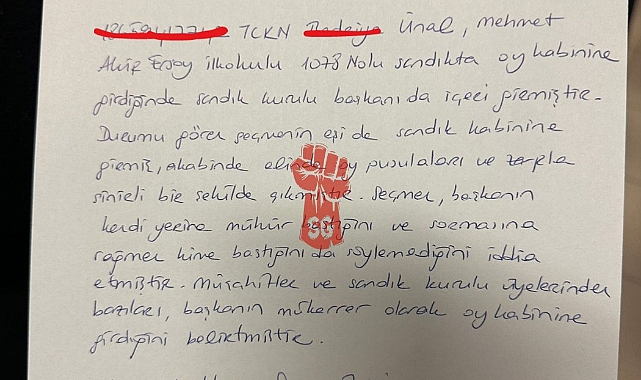 TCKN Ünal, Mehmet
Akif Ersoy ilkokulu 1078 Nolu sandıkta oy kabinine
girdiğinde sandık kurulu başkanı da içeri girmiştir.
Durumu gören seçmenin eşi de sandık kabinine
girmiş, akabinde elinde oy pusulaları ve zarfla
sinirli bir şekilde çıkmıştır. Seçmen, başkanın
kendi yerine mühür bastığını ve sormasına
rağmen kime bastığını da söylemediğini iddia
etmiştir. Müşahitler ve sandık kurulu üyelerinden
bazıları, başkanın mükerrer olarak oy kabinine
girdiğini belirtmiştir.
SG